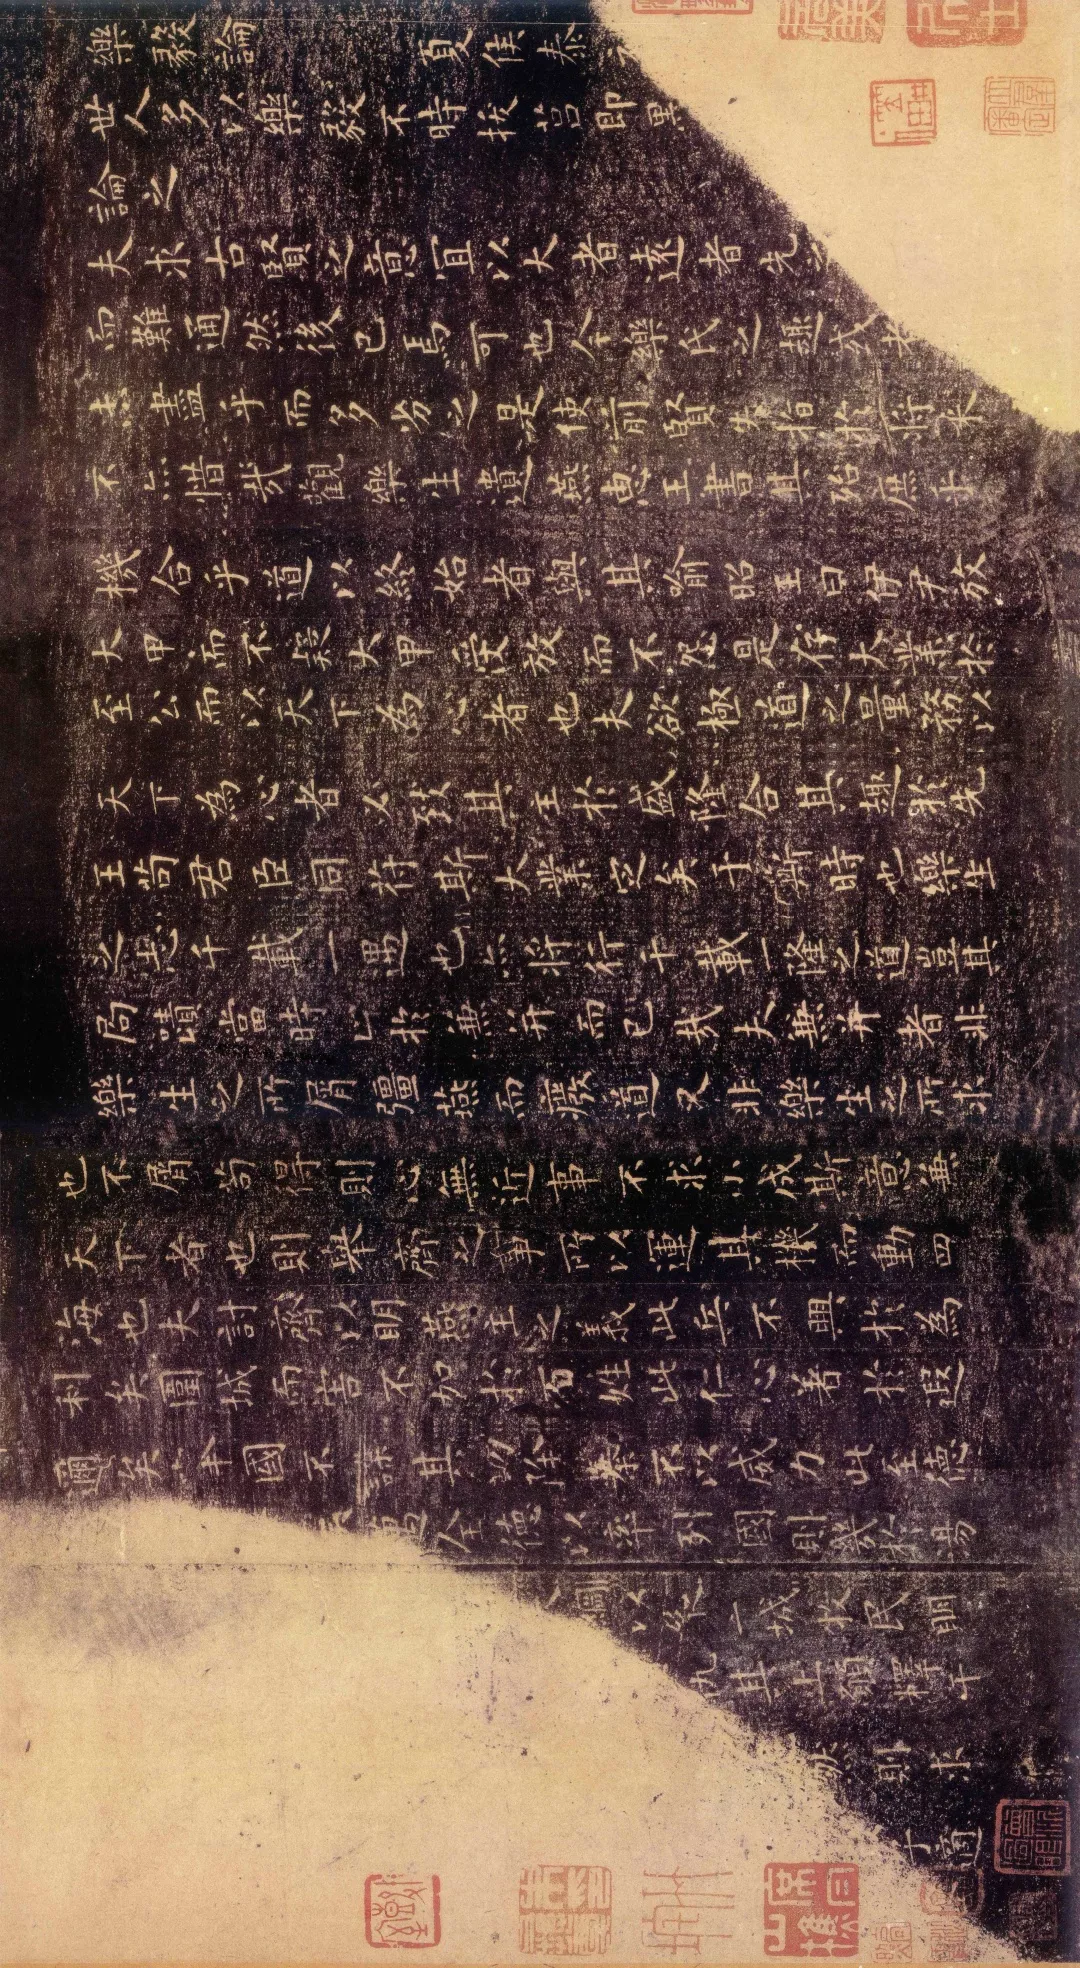 樂毅論 夏侯泰
世人多以樂毅不時拔莒即墨
論之
夫求古賢之意宜以大者遠者先之
而難通然後已焉可也今樂氏之趣或者
未盡乎而多劣之是使前賢失指於將來
不亦惜哉觀樂生遺燕惠王書其殆庶乎
機合乎道以終始者與其喻昭王曰伊尹放
大甲而不疑大甲受放而不怨是存大業於
至公而以天下為心者也夫欲極道之量務以
天下為心者必致其主於盛隆合其趣於先
王苟君臣同符斯大業定矣于斯時也樂生
之志千載一遇也亦將行千載一隆之道豈其
局蹟當時止於兼并而已哉夫兼并者非
樂生之所屑彊燕而廢道又非樂生之所求
也不屑苟得則心無近事不求小成斯意兼
天下者也則舉齊之事所以運其機而動四
海也夫討齊以明燕主之義此兵不興於為
利矣圍城而害不加於百姓此仁心著於遐
邇矣舉國不謀其功除暴不以威力此至德
矣邁全德以率列國則幾於湯
綱以縱二城收民明
仇其上願釋干
然則求
子適